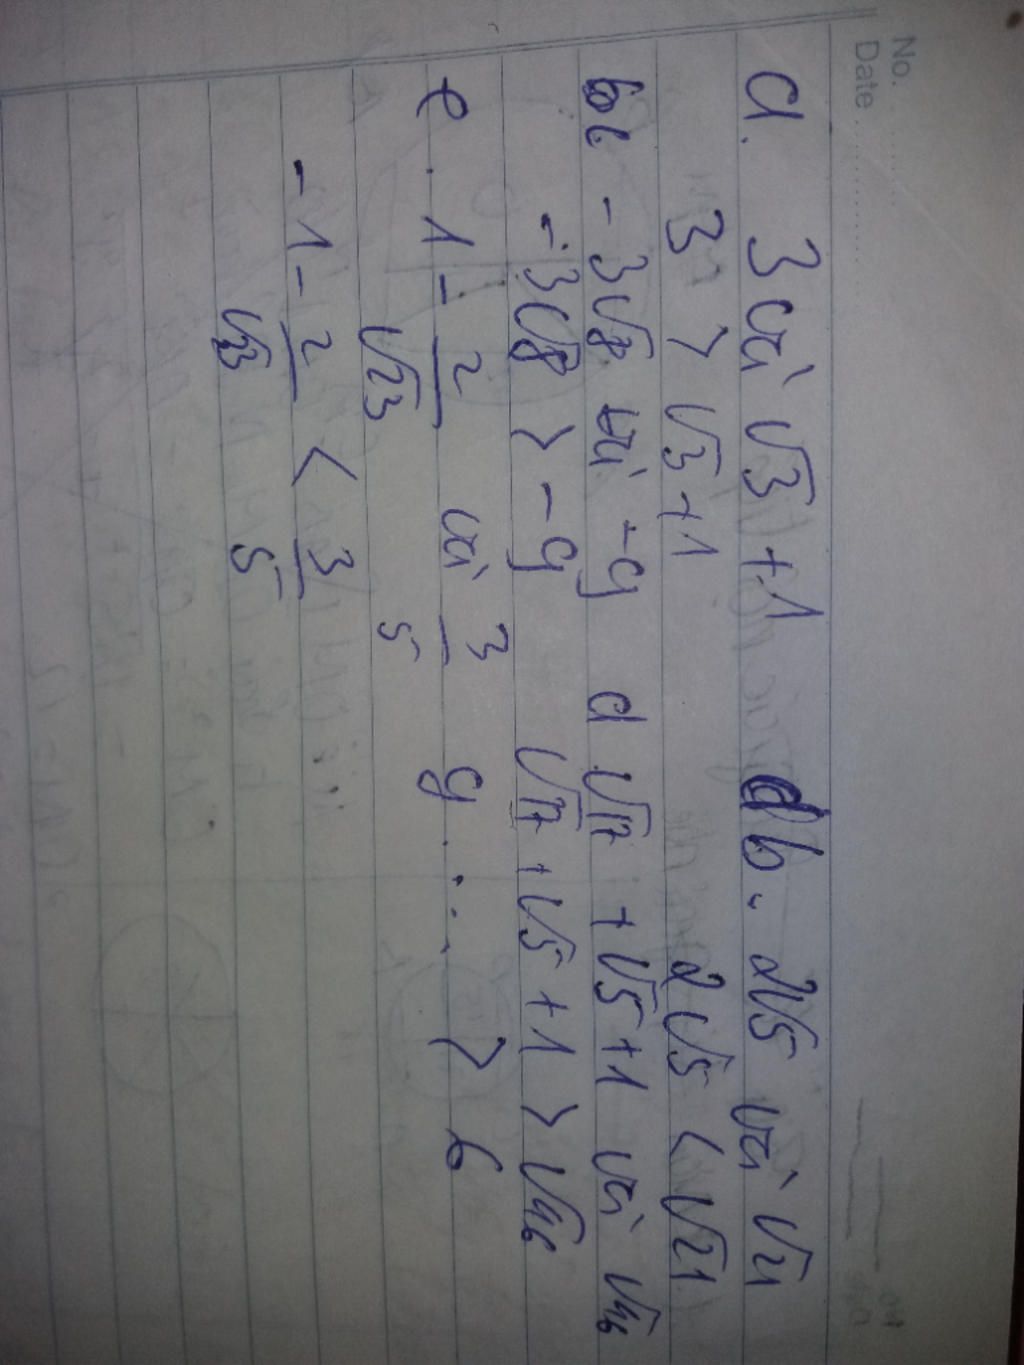 No. ............
Date ............
a. 3 và √3 + 1 b. 2√5 và √21
3 > √3 + 1 2√5 < √21
- 3√8 và -9 d √17 + √5 + 1 và √46
- 3√8 > -9 √17 + √5 + 1 > √46
e. 1 - 2/√23 và 3/5 g. ... > 6
- 1 - 2/√23 < 3/5